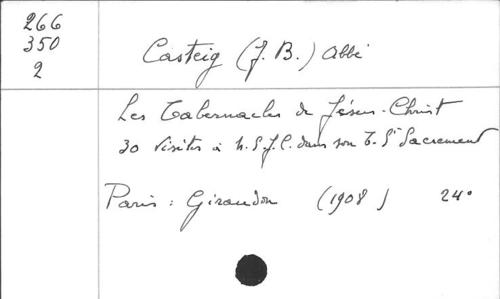 266
350
2
Casteig (J. B.) Abbé
Les Tabernacles de Jésus-Christ
30 Visites à N. S. J. C. dans son T. St Sacrement
Paris : Giraudon (1908) 24°